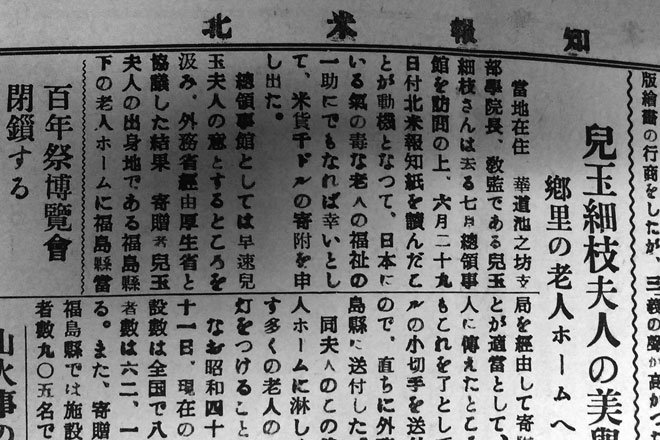 北米報知
版繪畫の行商をしたが、
兒玉細枝夫人の美
鄕里の老人ホームへ
當地在住 華道池之坊支
部學院長、敎監である兒玉
細枝さんは去る七月總領事
館を訪問の上、六月二十九
日付北米報知紙を讀んだこ
とが動機となつて、日本に
いる氣の毒な老人の福祉の
一助にでもなれば幸いとし
て、米貨千ドルの寄附を申
し出た。
總領事館としては早速兒
玉夫人の意とするところを
汲み、外務省經由厚生省と
協議した結果 寄贈者兒玉
夫人の出身地である福島縣
下の老人ホームに福島縣當
局を經由して寄附
とが適當として、
人に傳えたところ
もこれを了として
ルの小切手を送付
ので、直ちに外
島縣に送付した。
同夫人のこの
人ホームに淋し
す多くの老人の
灯をつけること
なお昭和四十
十一日、現在の
設數は全国で八
者數は六二、一
る。また、寄贈
福島縣では施設
者數九〇五名で
百年祭博覽會
閉鎖する
山火事の